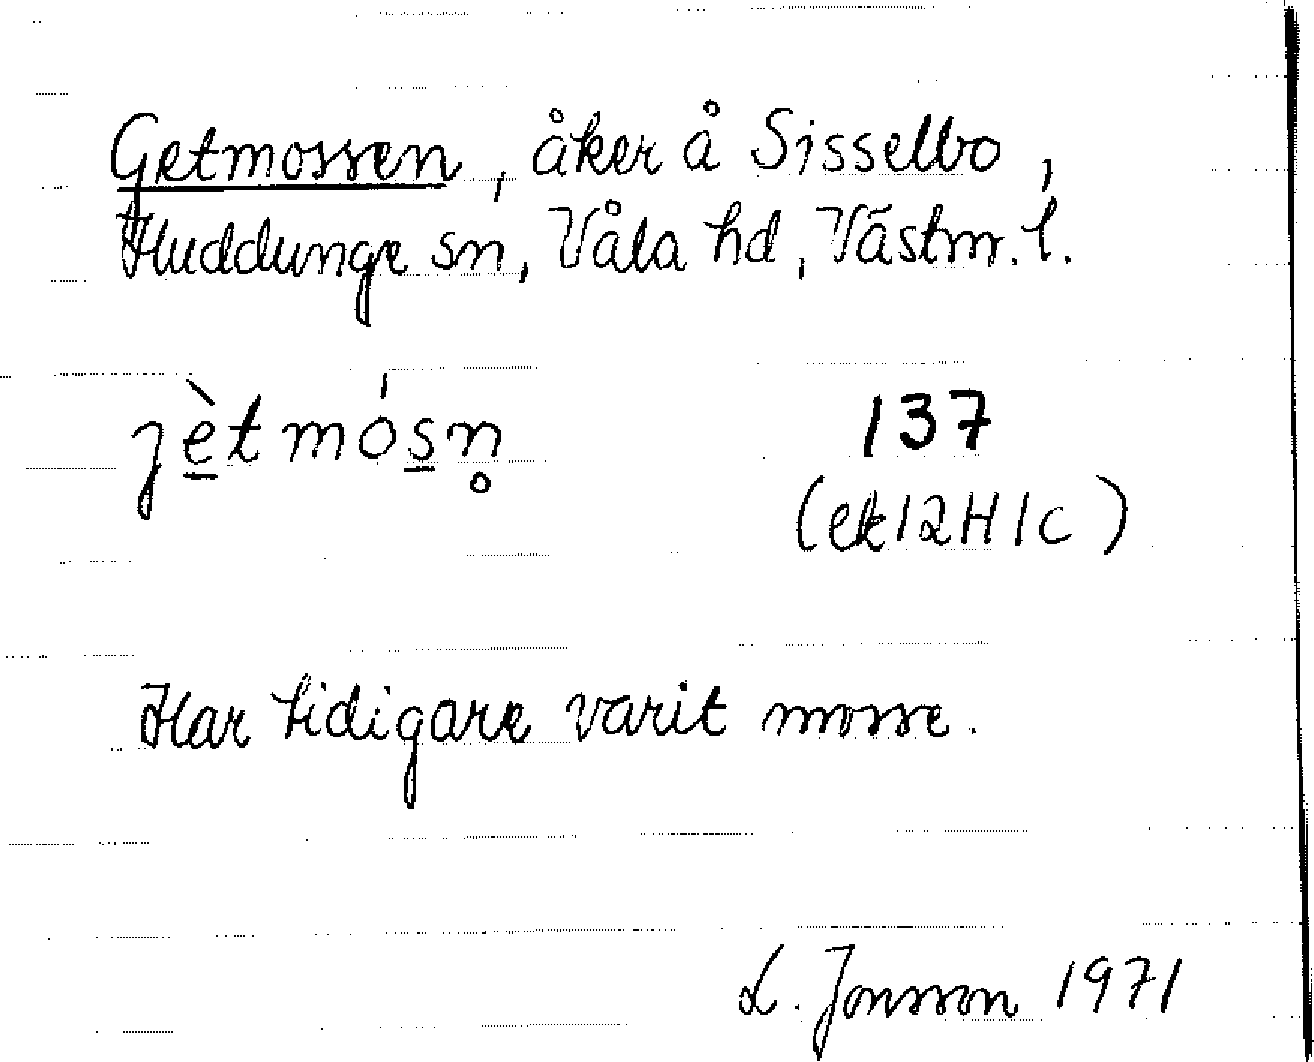 Getmossen, åker å Sisselbo,
Huddunge sn, Våla hd, Västm. l.
jètmósn̥
137
(ek 12H1c)
Har tidigare varit mosse.
L. Jonsson 1971